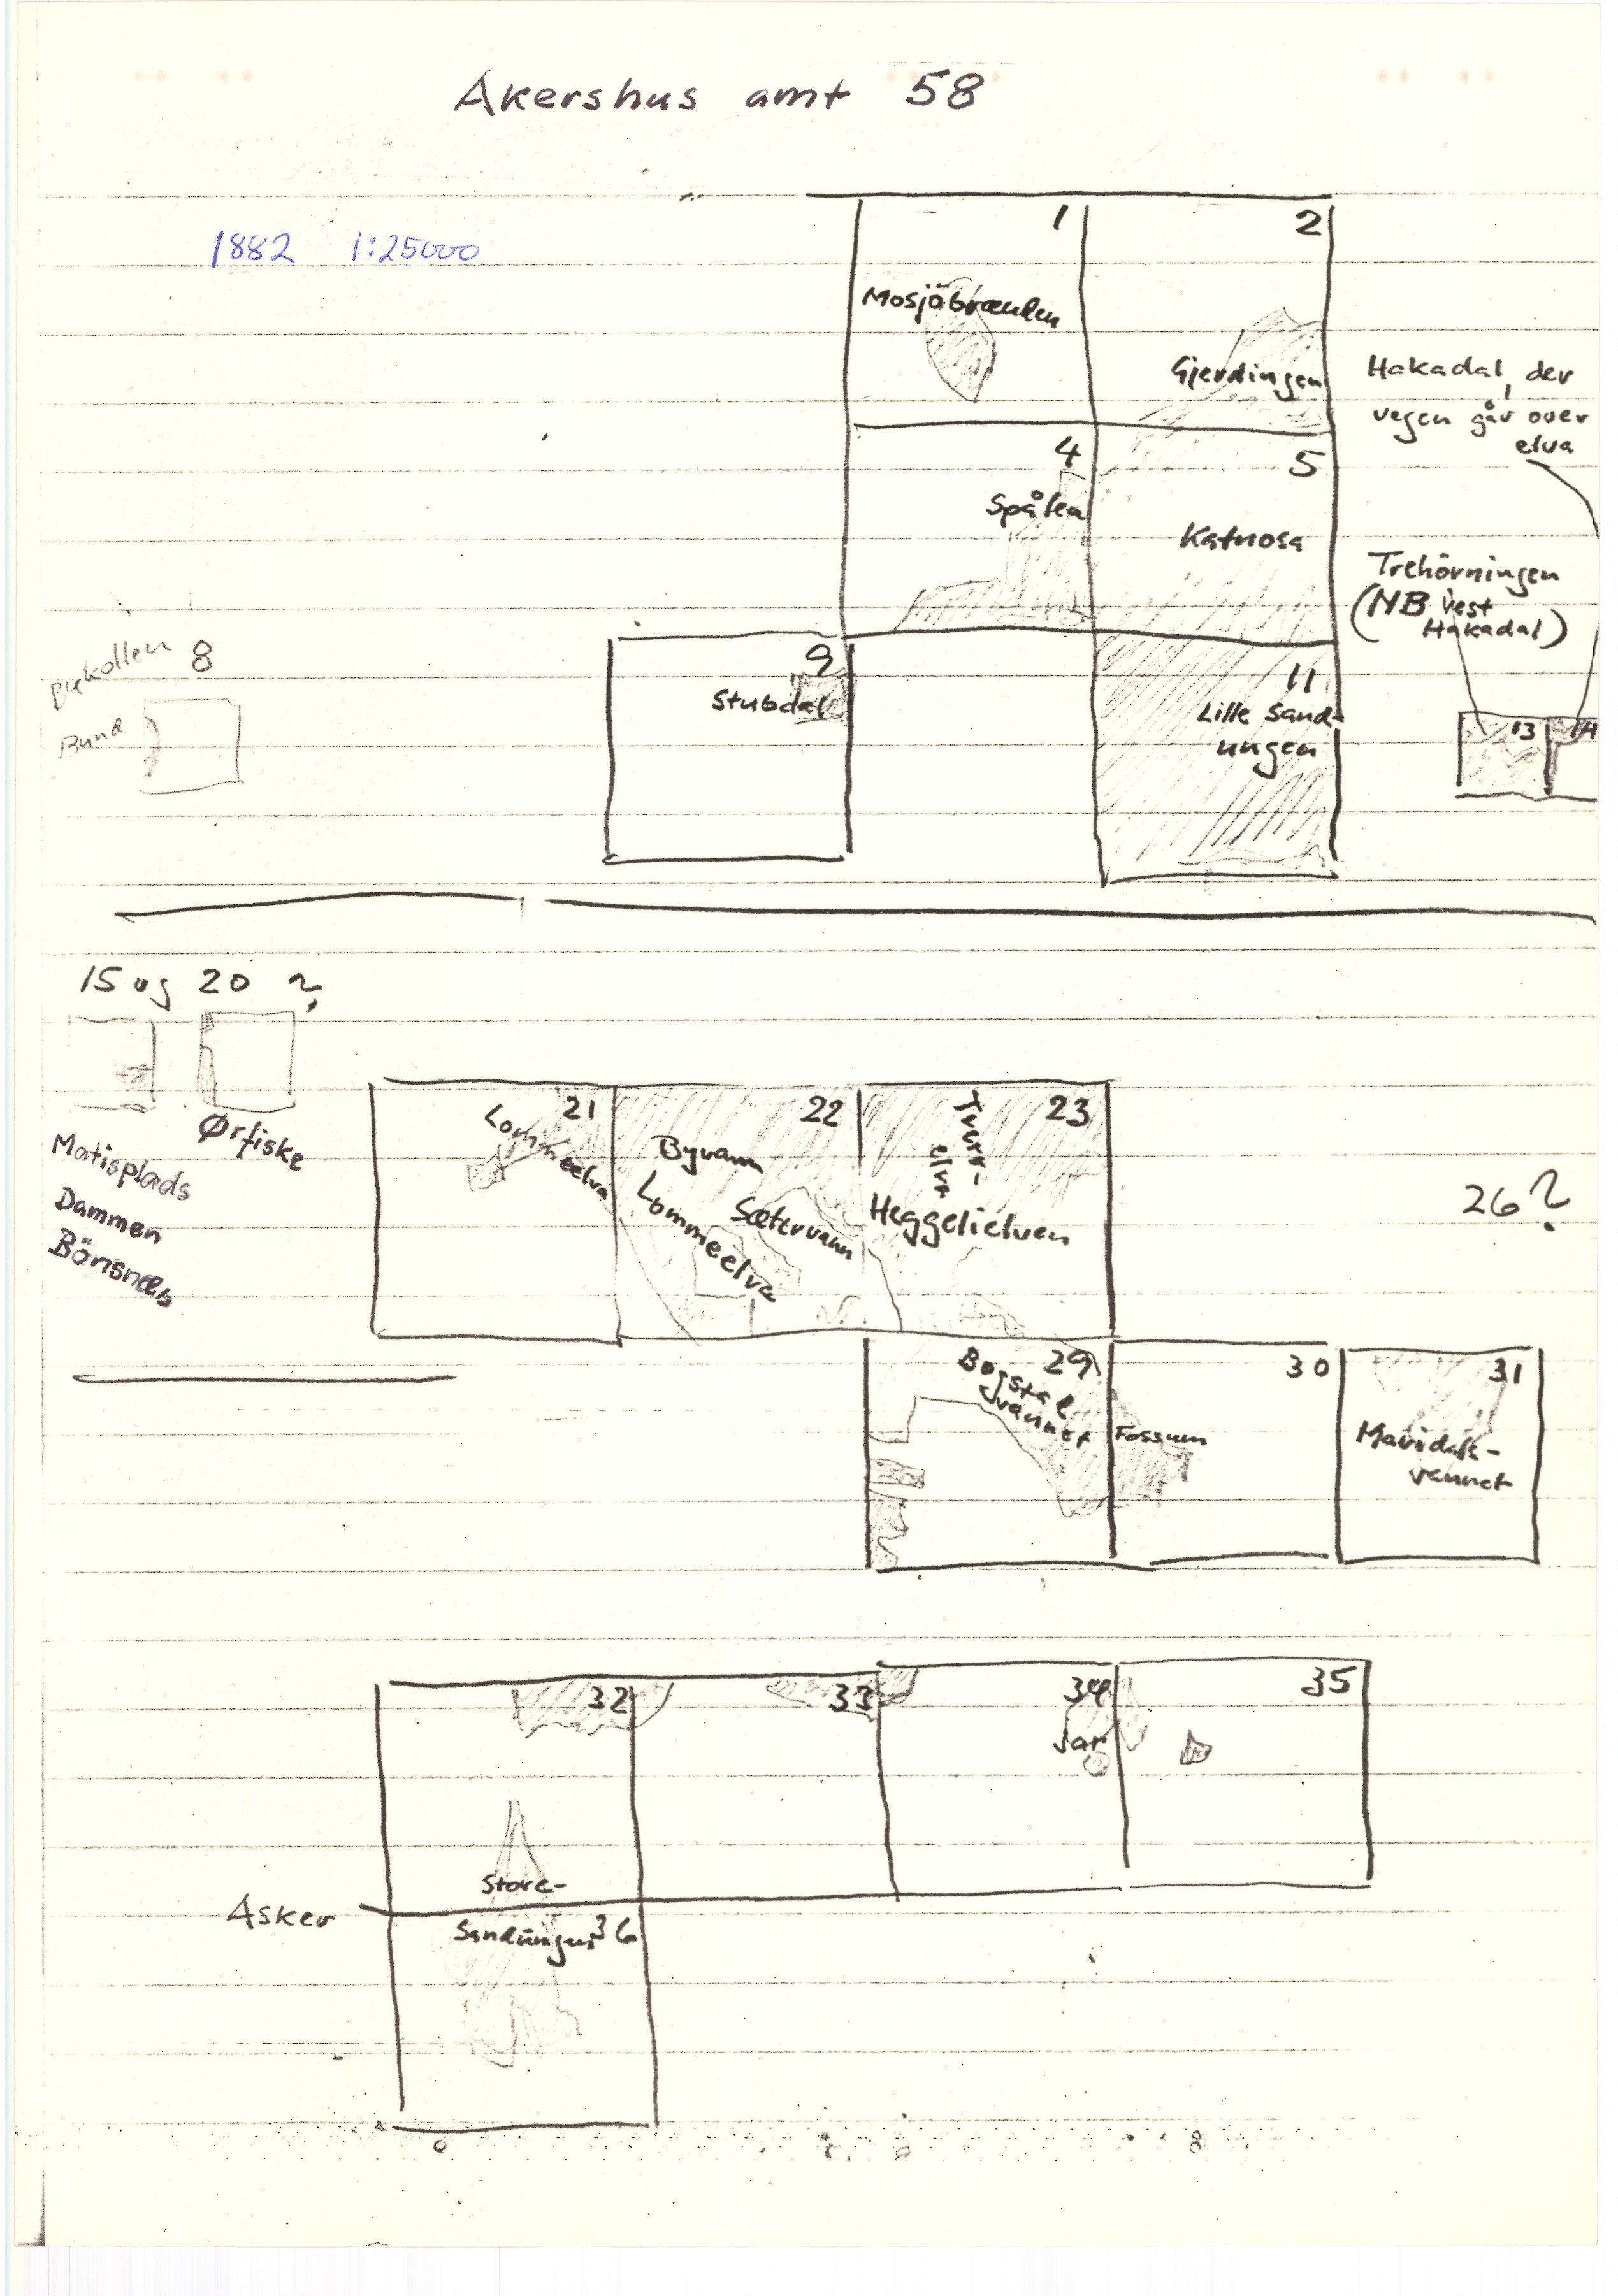 Akershus amt 58
1882 1:25000
1
2
Mosjöbrænden
Gjerdingen
Hakadal, der
vegen går over
elva
4
5
Spålen
Katnosa
Trehörningen
(NB vest
Hakadal)
8
9
Stubdal
11
Lille Sand-
ungen
13
14
15 og 20 ?
Ørfiske
Matisplads
Dammen
Bönsnæs
21
Lommeelva
22
Byvann
Sætervann
Lommeelva
23
Tverr-
elva
Heggelielven
26?
29
Bogstad
vannet
30
Fossum
31
Maridals-
vannet
32
33
34
Jar
35
Store-
Asker
Sandungen 36